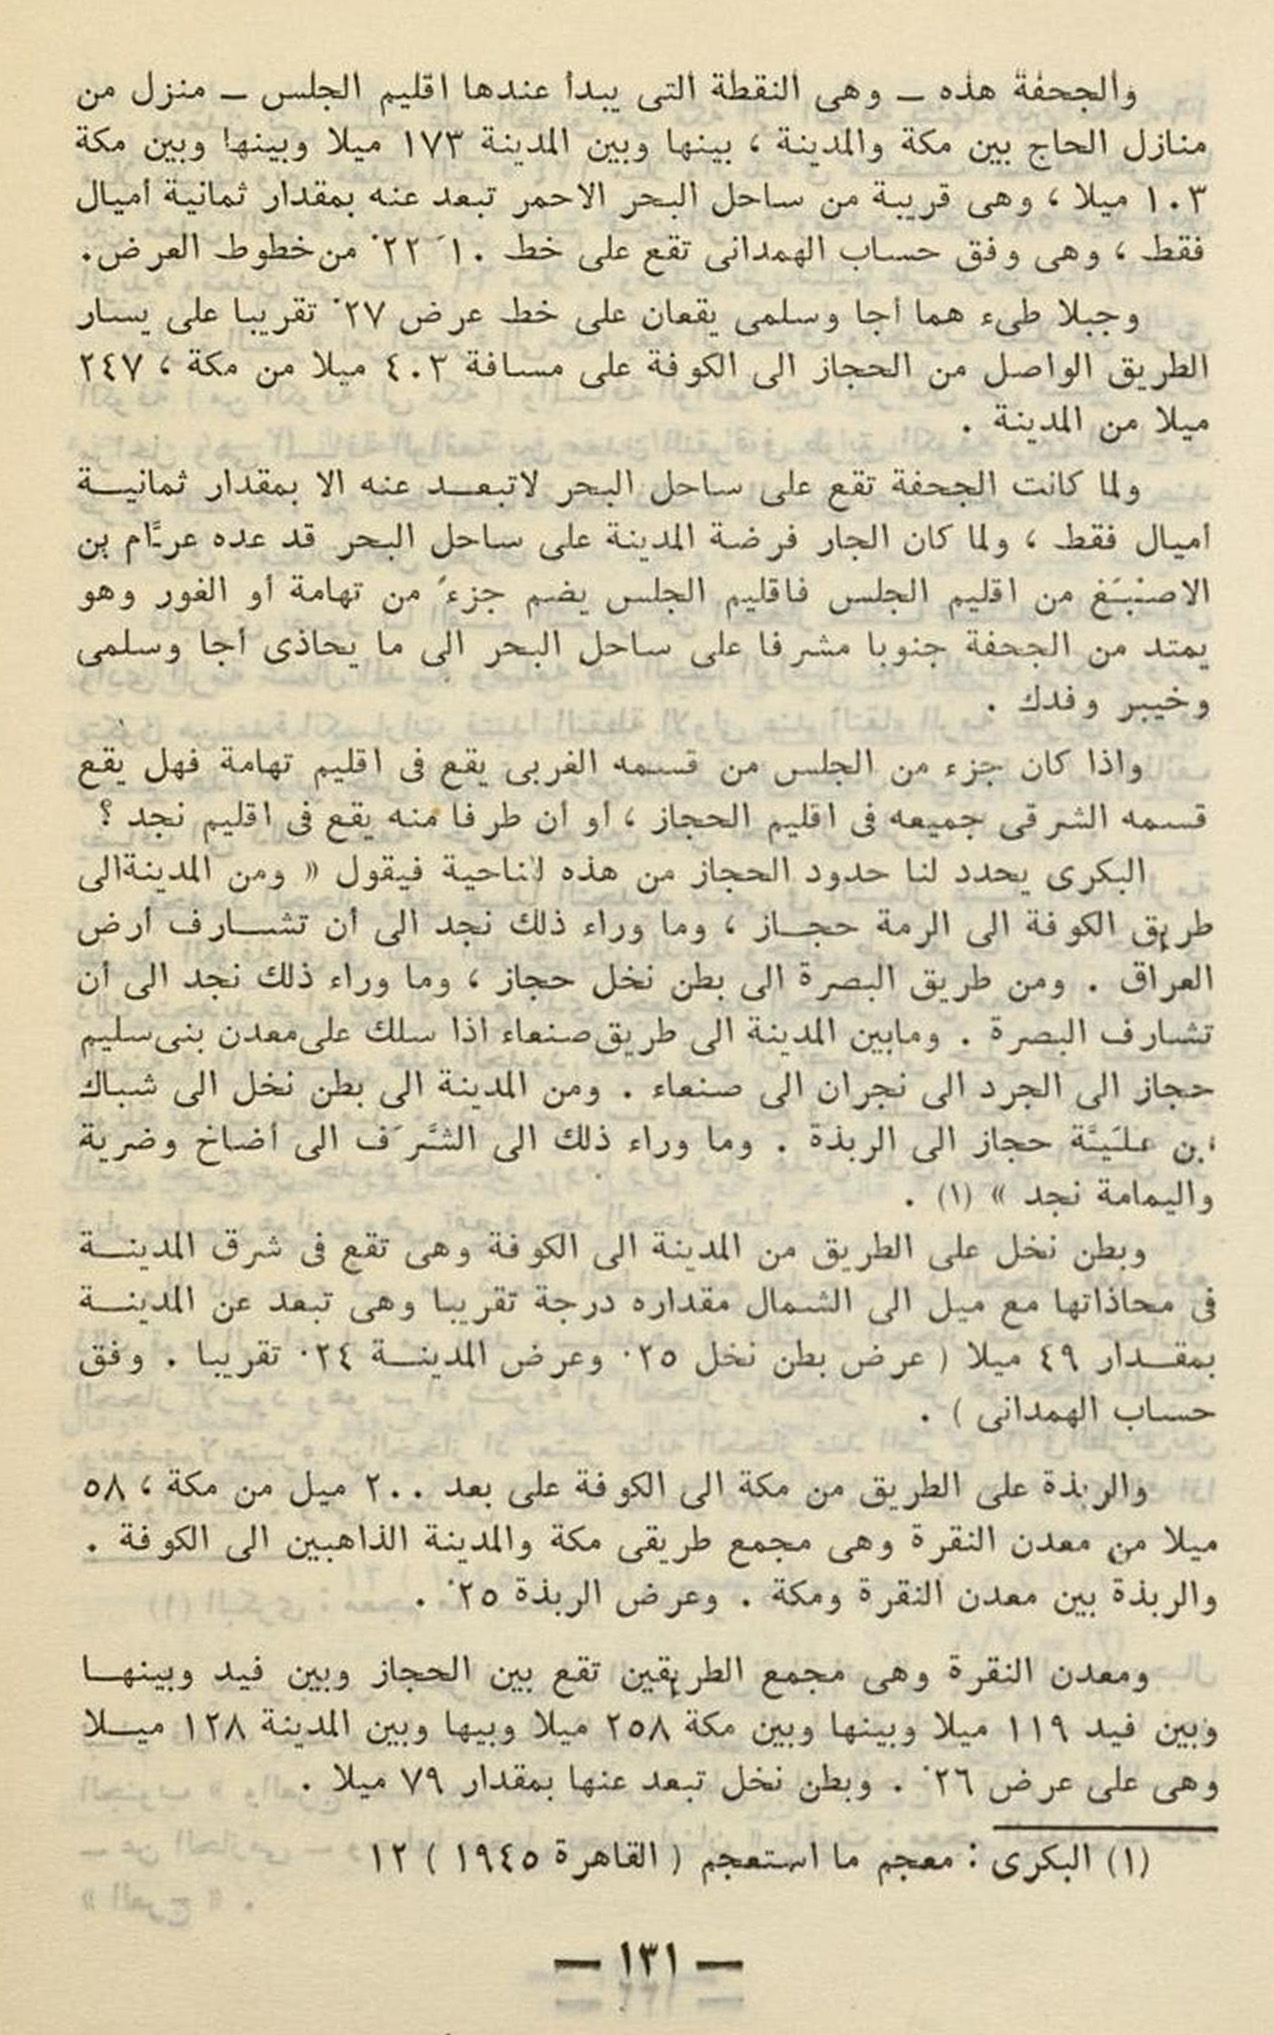 والجحفة هذه ــ وهى النقطة التى يبدأ عندها اقليم الجلس ــ منزل من
منازل الحاج بين مكة والمدينة ، بينها وبين المدينة ١٧٣ ميلا وبينها وبين مكة
١٠٣ ميلا ، وهى قريبة من ساحل البحر الاحمر تبعد عنه بمقدار ثمانية أميال
فقط ، وهى وفق حساب الهمدانى تقع على خط ١٠َ ٢٢ْ من خطوط العرض.
وجبلا طىء هما أجا وسلمى يقعان على خط عرض ٢٧ْ تقريبا على يسار
الطريق الواصل من الحجاز الى الكوفة على مسافة ٤٠٣ ميلا من مكة ، ٢٤٧
ميلا من المدينة .
ولما كانت الجحفة تقع على ساحل البحر لاتبعـد عنه الا بمقدار ثمانيـة
أميال فقط ، ولما كان الجار فرضة المدينة على ساحل البحر قد عده عرَّام بن
الاصْبَغ من اقليم الجلس فاقليم الجلس يضم جزءً من تهامة أو الغور وهو
يمتد من الجحفة جنوبا مشرفا على ساحل البحر الى ما يحاذى أجا وسلمى
وخيبر وفدك .
واذا كان جزء من الجلس من قسمه الغربى يقع فى اقليم تهامة فهل يقع
قسمه الشرقى جميعه فى اقليم الحجاز ، أو أن طرفا منه يقع فى اقليم نجد ؟
البكرى يحدد لنا حدود الحجاز من هذه الناحية فيقول « ومن المدينةالى
طريق الكوفة الى الرمة حجـاز ، وما وراء ذلك نجد الى أن تشـارف أرض
العراق . ومن طريق البصرة الى بطن نخل حجاز ، وما وراء ذلك نجد الى أن
تشارف البصرة . ومابين المدينة الى طريق صنعاء اذا سلك على معدن بنى سليم
حجاز الى الجرد الى نجران الى صنعاء . ومن المدينة الى بطن نخل الى شباك
ابن علَيَّة حجاز الى الربذة . وما وراء ذلك الى الشَّرَف الى أضاخ وضرية
واليمامة نجد » (١) .
وبطن نخل على الطريق من المدينة الى الكوفة وهى تقع فى شرق المدينـة
فى محاذاتها مع ميل الى الشمال مقداره درجة تقريبا وهى تبعد عن المدينـة
بمقـدار ٤٩ ميلا ( عرض بطن نخل ٢٥ْ وعرض المدينـة ٢٤ْ تقريبا . وفق
حساب الهمدانى ) .
والربذة على الطريق من مكة الى الكوفة على بعد ٢٠٠ ميل من مكة ، ٥٨
ميلا من معدن النقرة وهى مجمع طريقى مكة والمدينة الذاهبين الى الكوفة .
والربذة بين معدن النقرة ومكة . وعرض الربذة ٢٥ْ .
ومعدن النقرة وهى مجمع الطريقين تقع بين الحجاز وبين فيد وبينهـا
وبين فيد ١١٩ ميلا وبينها وبين مكة ٢٥٨ ميلا وبيها وبين المدينة ١٢٨ ميـلا
وهى على عرض ٢٦ْ . وبطن نخل تبعد عنها بمقدار ٧٩ ميلا .
(١) البكرى : معجم ما استعجم ( القاهرة ١٩٤٥ ) ١٢
— ١٣١ —